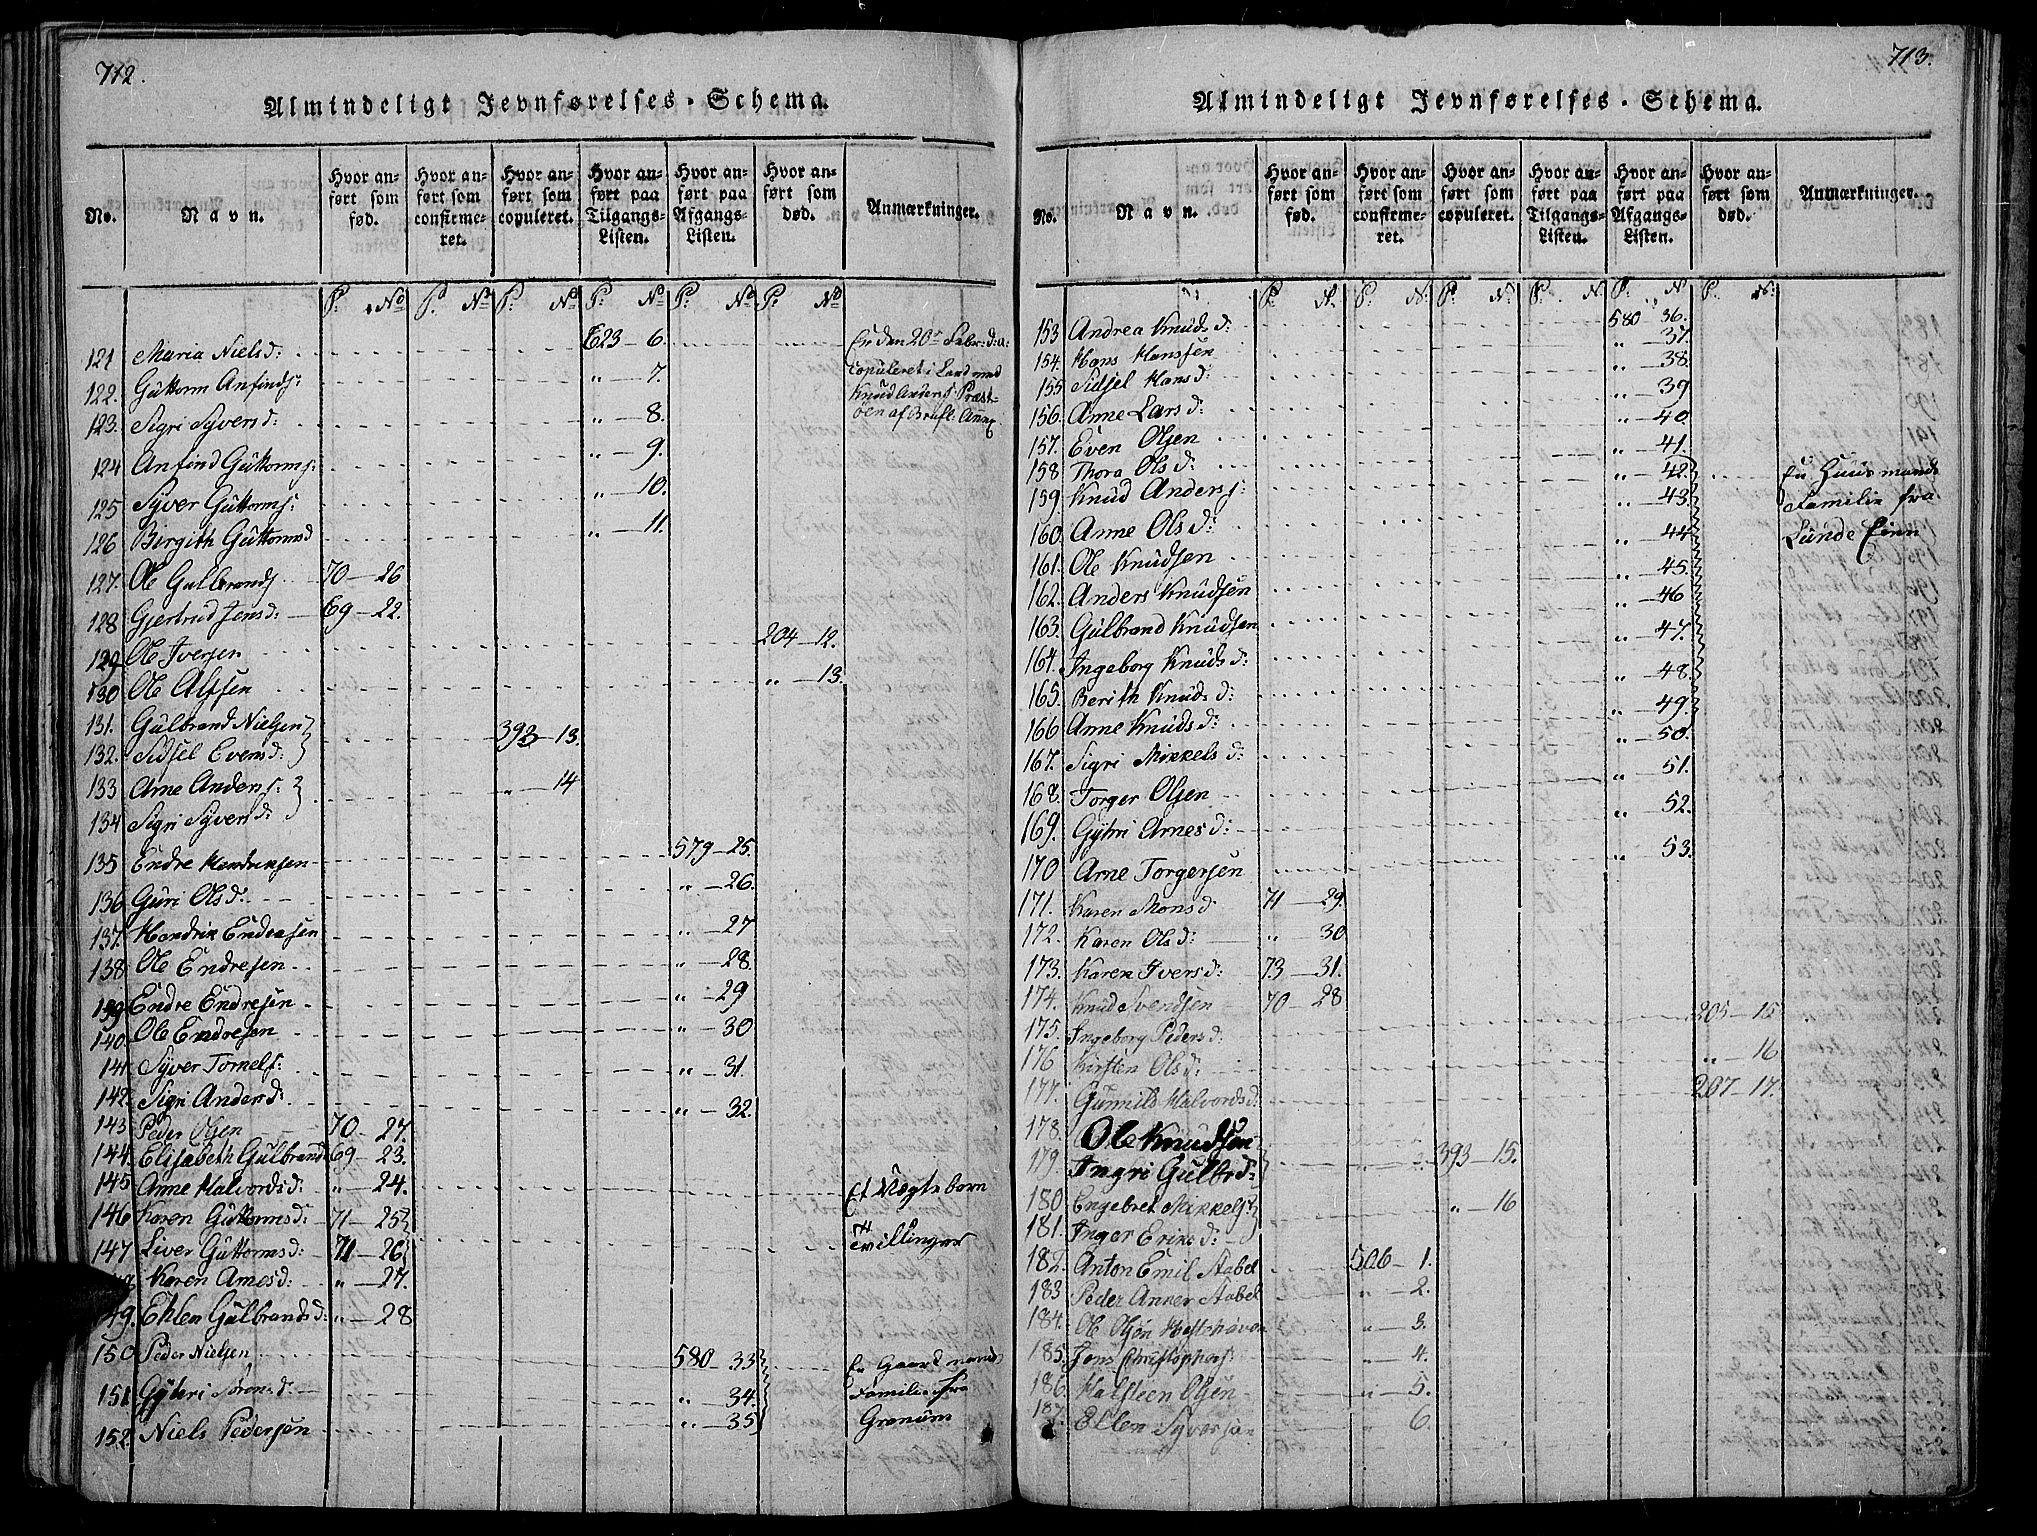 712.
Almindeligt Jevnførelses-Schema.
No. Navn. Hvor anført som fød. Hvor anført som confirmeret. Hvor anført som copuleret. Hvor anført paa Tilgangs-Listen. Hvor anført paa Afgangs-Listen. Hvor anført som død. Anmærkninger.
P: No P: No P: No P: No P: No P: No
121 Maria Nielsd: 623 - 6. Er den 20de Febr: d: A:
122. Guttorm Anfinds: " - 7. copuleret i Land med
123. Sigri Syversd: " - 8. Knud Anders: Præst-
øen af Brufl. Annex
124 Anfind Guttorms: " - 9.
125 Syver Guttorms: " - 10.
126 Birgith Guttormsd " - 11.
127. Ole Gulbrands 70 - 26
128 Gjertrud Jensd: 69 - 22.
129 Ole Iversen 204 - 12.
130 Ole Alfsen " - 13.
131. Gulbrand Nielsen
132. Sidsel Evensd: 393 - 13.
133 Arne Anders: " - 14
134 Sigri Syversd:
135 Endre Hendriksen 579 - 25.
136 Guri Olsd: " - 26.
137. Hendrik Endresen " - 27
138 Ole Endresen " - 28.
139 Endre Endresen " - 29
140. Ole Endresen " - 30
141 Syver Tomels: " - 31.
142. Sigri Andersd: " - 32.
143 Peder Olsen 70 - 27.
144. Elisabeth Gulbrandsd 69 - 23.
145 Anne Halvordsd: " - 24. Et Uægte barn
146 Karen Guttormsd: 71 - 25
147 Liver Guttormsd: 71 - 26 Tvillinger
Karen Arnesd: " - 27.
49. Ehlen Gulbrandsd: " - 28
150 Peder Nielsen 580 - 33 En Gaardmands
151 Gyhri Sørensd: " - 34. Familie fra
152. Niels Pedersen " - 35 Grønum
713.
Almindeligt Jevnførelses-Schema.
No. Navn. Hvor anført som fød. Hvor anført som confirmeret. Hvor anført som copuleret. Hvor anført paa Tilgangs-Listen. Hvor anført paa Afgangs-Listen. Hvor anført som død. Anmærkninger.
P. N. P. N. P. N. P. N. P. N. P. N.
153 Andrea Knudsd: 580 - 36.
154. Hans Hanssen " - 37.
155 Sidsel Hansd: " - 38.
156. Anne Larsd: " - 39
157. Even Olsen " - 40
158 Thora Olsd: " - 41.
159 Knud Anders: " - 42. En Huusmands
160. Anne Olsd: " - 43. Familie fra
161. Ole Knudsen " - 44 Lunde Eien
162. Anders Knudsen " - 45.
163. Gulbrand Knudsen " - 46
164. Ingeborg Knudsd: " - 47.
165. Berith Knudsd: " - 48.
166 Anne Knudsd: " - 49.
167. Sigri Mikkelsd: " - 50.
168. Torger Olsen " - 51.
169. Gyhri Arnesd: " - 52.
170 Arne Torgersen " - 53.
171. Karen Monsd: 71 - 29.
172. Karen Olsd: " 30
173. Karen Iversd: 73 - 31.
174. Knud Svendsen 70 - 28
175. Ingeborg Pedersd: 205 - 15
176 Kirsten Olsd: " - 16
177. Gunnild Halvordsd: 207 - 17.
178. Ole Knudsen
179. Ingri Gulbrd: 393 - 15.
180 Engebret Mikkels: " - 16
181. Inger Eriksd:
182. Anton Emil Stabel 506 - 1.
183 Peder Anner Stabel " - 2.
184. Ole Olsen " - 3.
185. Jens Christophers: " - 4.
186. Halsteen Olsen " - 5.
187. Ellen Syversen " 6.